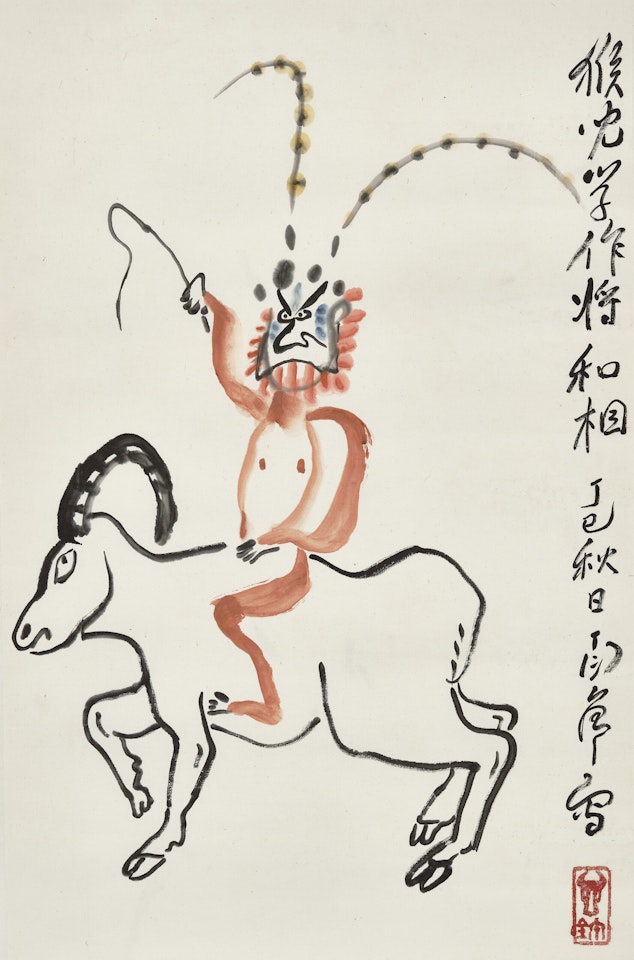 猴兒学作将和相 丁巳秋日 丁衍庸寫